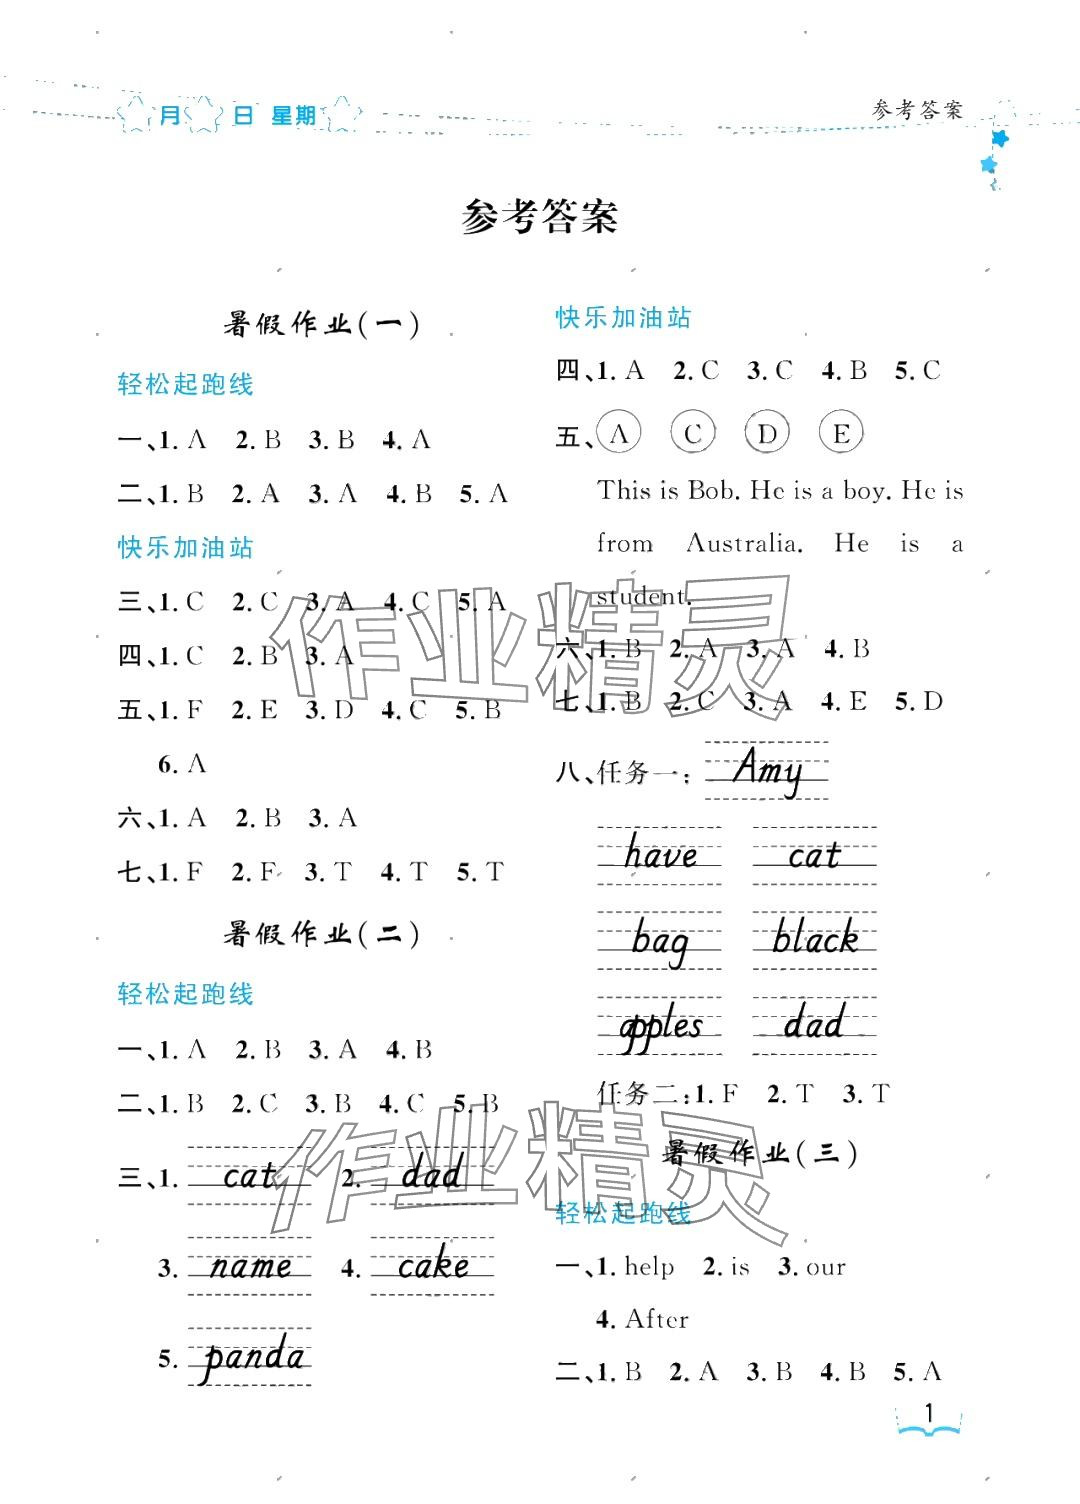 月 日 星期
参考答案
参考答案
暑假作业(一)
轻松起跑线
一、1. A 2. B 3. B 4. A
二、1. B 2. A 3. A 4. B 5. A
快乐加油站
三、1. C 2. C 3. A 4. C 5. A
四、1. C 2. B 3. A
五、1. F 2. E 3. D 4. C 5. B
6. A
六、1. A 2. B 3. A
七、1. F 2. F 3. T 4. T 5. T
暑假作业(二)
轻松起跑线
一、1. A 2. B 3. A 4. B
二、1. B 2. C 3. B 4. C 5. B
三、1. cat 2. dad
3. name 4. cake
5. panda
快乐加油站
四、1. A 2. C 3. C 4. B 5. C
五、A C D E
This is Bob. He is a boy. He is
from Australia. He is a
student.
六、1. B 2. A 3. A 4. B
七、1. B 2. C 3. A 4. E 5. D
八、任务一: Amy
have cat
bag black
apples dad
任务二: 1. F 2. T 3. T
暑假作业(三)
轻松起跑线
一、1. help 2. is 3. our
4. After
二、1. B 2. A 3. B 4. B 5. A
1
作业精灵
作业精灵